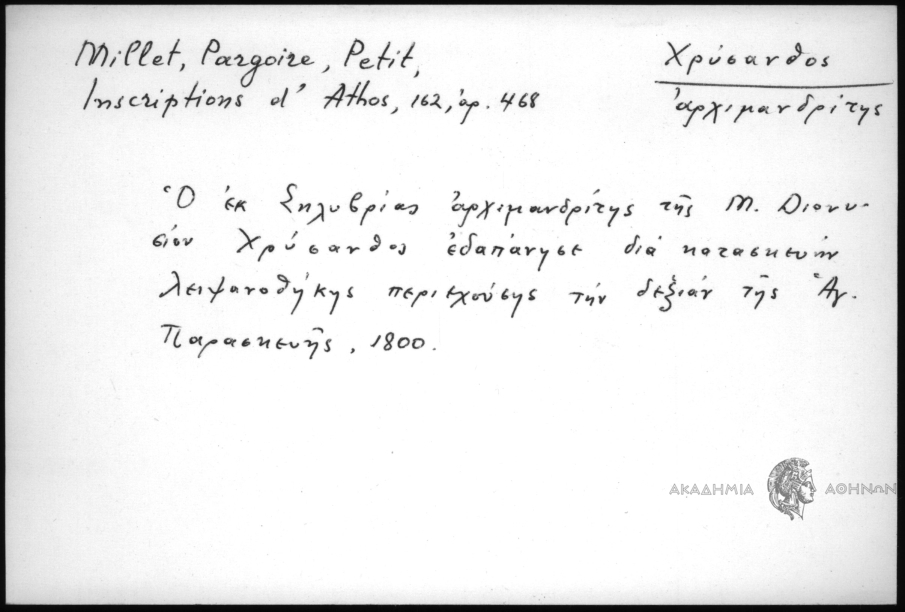 Millet, Pargoire, Petit,
Inscriptions d' Athos, 162, ἀρ. 468
Χρύσανθος
ἀρχιμανδρίτης
Ὁ ἐκ Σηλυβρίας ἀρχιμανδρίτης τῆς Μ. Διονυ-
σίου Χρύσανθος ἐδαπάνησε διά κατασκευήν
λειψανοθήκης περιεχούσης τήν δεξιάν τῆς Ἁγ.
Παρασκευῆς, 1800.
ΑΚΑΔΗΜΙΑ ΑΘΗΝΩΝ